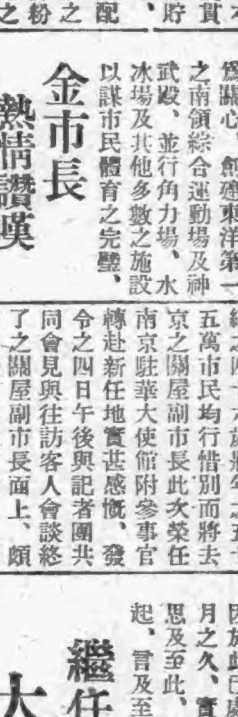 配
之粉
爲關心、創建東洋第一
之南領綜合運動場及神
武殿、並行角力場、水
冰場及其他多數之施設
以謀市民體育之完璧、
金市長
熱情讚嘆
五萬市民均行惜別而將去
京之關屋副市長此次榮任
南京駐華大使館附參事官
轉赴新任地實甚感慨、發
令之四日午後與記者團共
同會見與往訪客人會談終
了之關屋副市長面上、頗
月之久、實
思及至此、
起、言及至
繼任
大